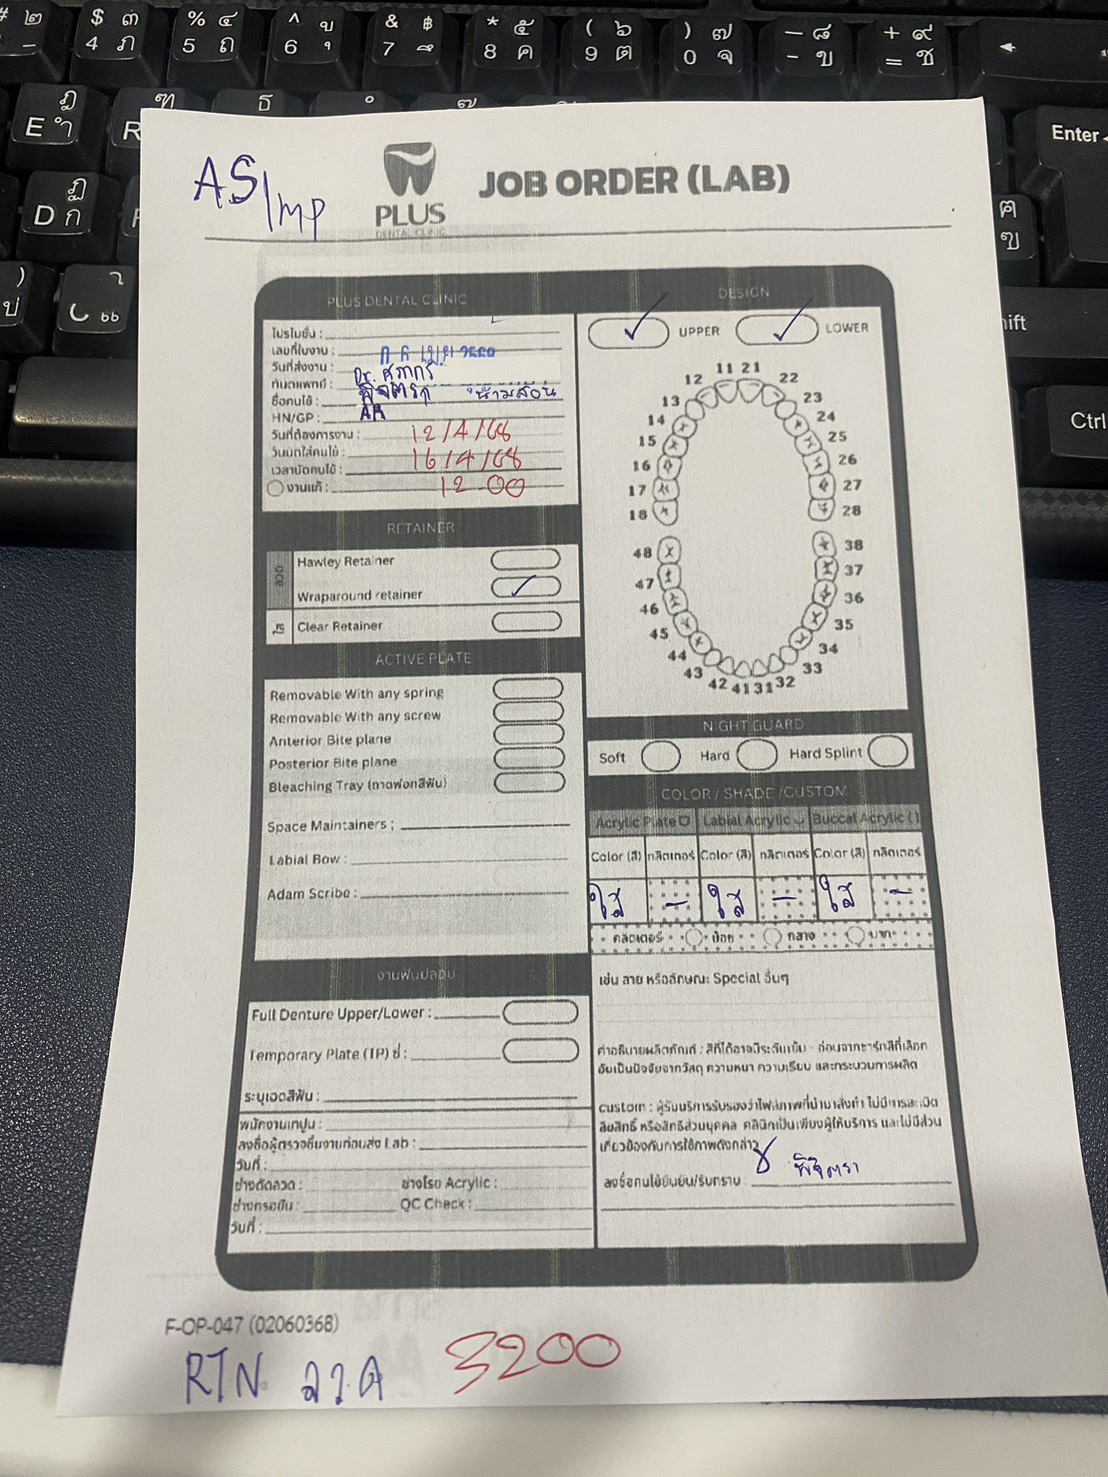 AS/Imp
PLUS
DENTAL CLINIC
JOB ORDER (LAB)
PLUS DENTAL CLINIC
โปรโมชั่น :
เลขที่ใบงาน :
วันที่ส่งงาน :
ทันตแพทย์ : Dr. ศุภกร
ชื่อคนไข้ :
HN/GP :
วันที่ต้องการงาน : 12/4/68
วันนัดใส่คนไข้ : 16/4/68
เวลานัดคนไข้ : 12 00
งานแก้ :
RETAINER
ลวด
Hawley Retainer
Wraparound retainer
ใส
Clear Retainer
ACTIVE PLATE
Removable With any spring
Removable With any screw
Anterior Bite plane
Posterior Bite plane
Bleaching Tray (ถาดฟอกสีฟัน)
Space Maintainers ;
Labial Bow :
Adam Scribe :
งานฟันปลอม
Full Denture Upper/Lower :
Temporary Plate (TP) ซี่ :
ระบุเฉดสีฟัน :
พนักงานเทปูน :
ลงชื่อผู้ตรวจชิ้นงานก่อนส่ง Lab :
วันที่ :
ช่างดัดลวด : ช่างโรย Acrylic :
ช่างกรอขัด : QC Check :
วันที่ :
DESIGN
UPPER
LOWER
11 21
12 22
13 23
14 24
15 25
16 26
17 27
18 28
48 38
47 37
46 36
45 35
44 34
43 33
42 41 31 32
NIGHT GUARD
Soft Hard Hard Splint
COLOR / SHADE / CUSTOM
Acrylic Plate Labial Acrylic Buccal Acrylic ( )
Color (สี) กลิตเตอร์ Color (สี) กลิตเตอร์ Color (สี) กลิตเตอร์
ใส - ใส - ใส -
กลิตเตอร์ น้อย กลาง มาก
เช่น ลาย หรือลักษณะ Special อื่นๆ
คำอธิบายผลิตภัณฑ์ : สีที่ได้อาจมีระดับเข้ม - อ่อนจากชาร์ทสีที่เลือก
อันเป็นปัจจัยจากวัสดุ ความหนา ความเรียบ และกระบวนการผลิต
custom : ผู้รับบริการรับรองว่าไฟล์ภาพที่นำมาสั่งทำ ไม่มีการละเมิด
ลิขสิทธิ์ หรือสิทธิส่วนบุคคล คลินิกเป็นเพียงผู้ให้บริการ และไม่มีส่วน
เกี่ยวข้องกับการใช้ภาพดังกล่าว
ลงชื่อคนไข้ยืนยัน/รับทราบ : พิจิตรา
F-OP-047 (02060368)
RTN ลวด 3200
Enter
Ctrl